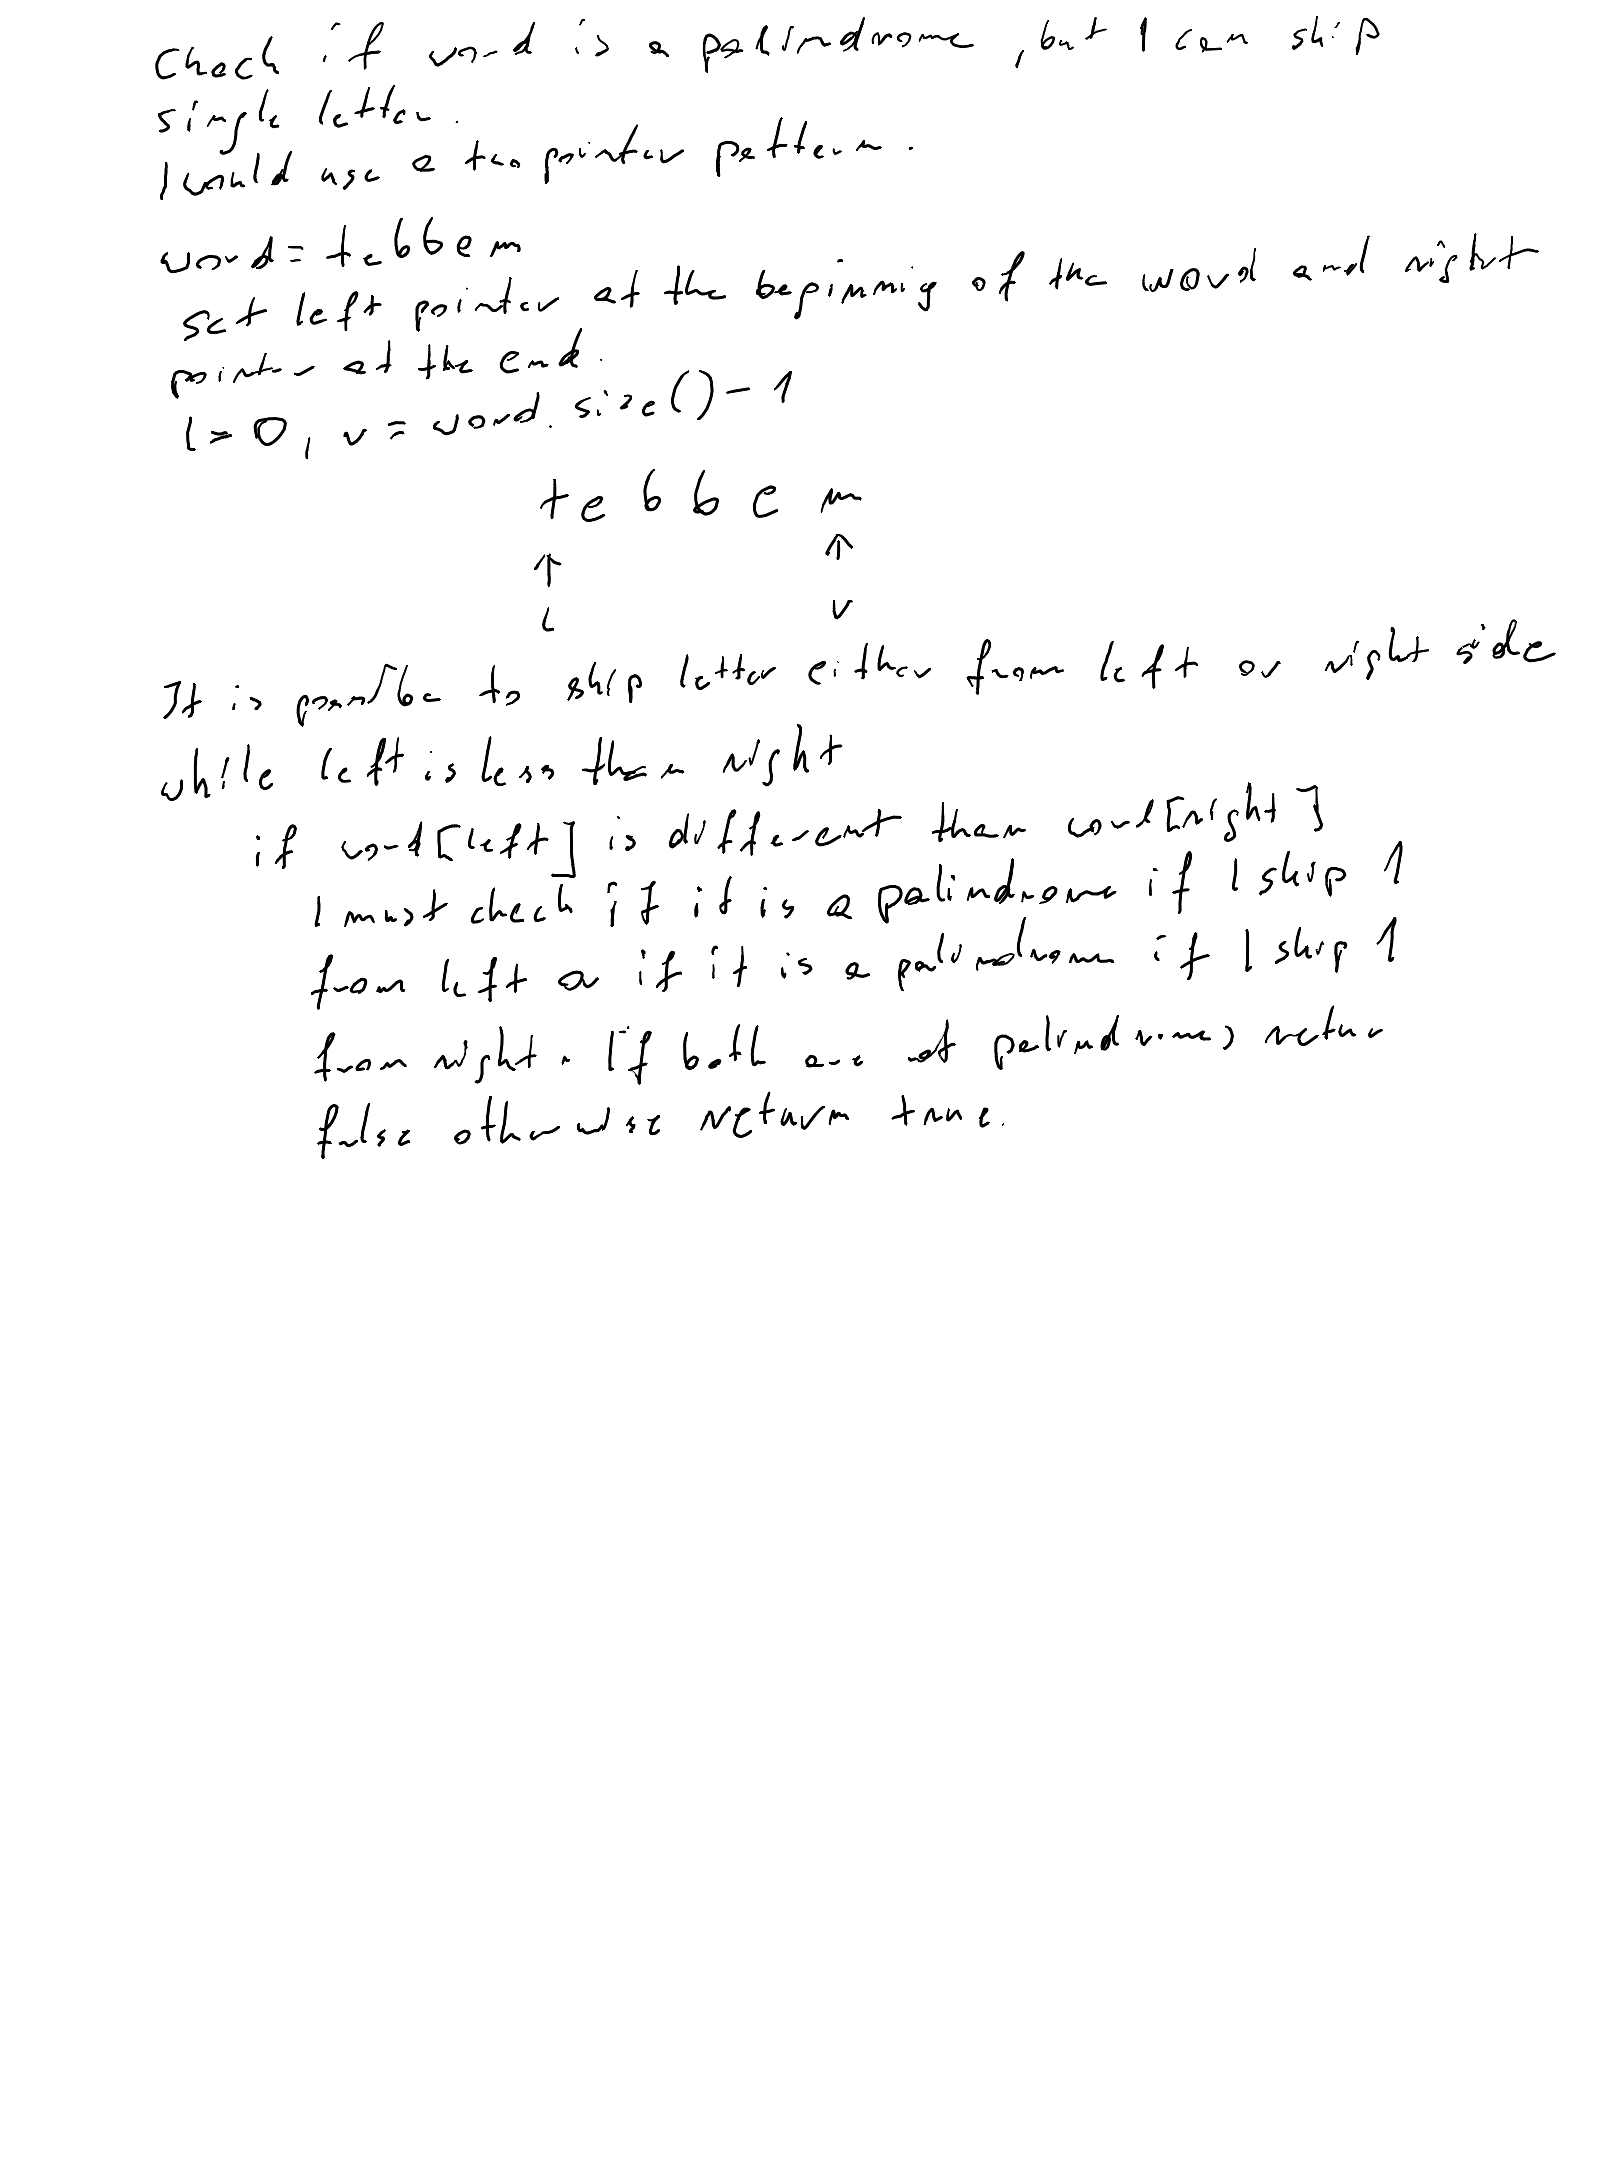 Check if word is a palindrome, but I can skip
single letter.
I would use a two pointer pattern.
word = tebbem
set left pointer at the beginnig of the word and right
pointer at the end.
l = 0, r = word.size() - 1
t e b b e m
↑ ↑
l r
It is possible to skip letter either from left or right side
while left is less than right
if word[left] is different than word[right]
I must check if it is a palindrome if I skip 1
from left or if it is a palindrome if I skip 1
from right. If both are not palindromes retur
false otherwise return true.